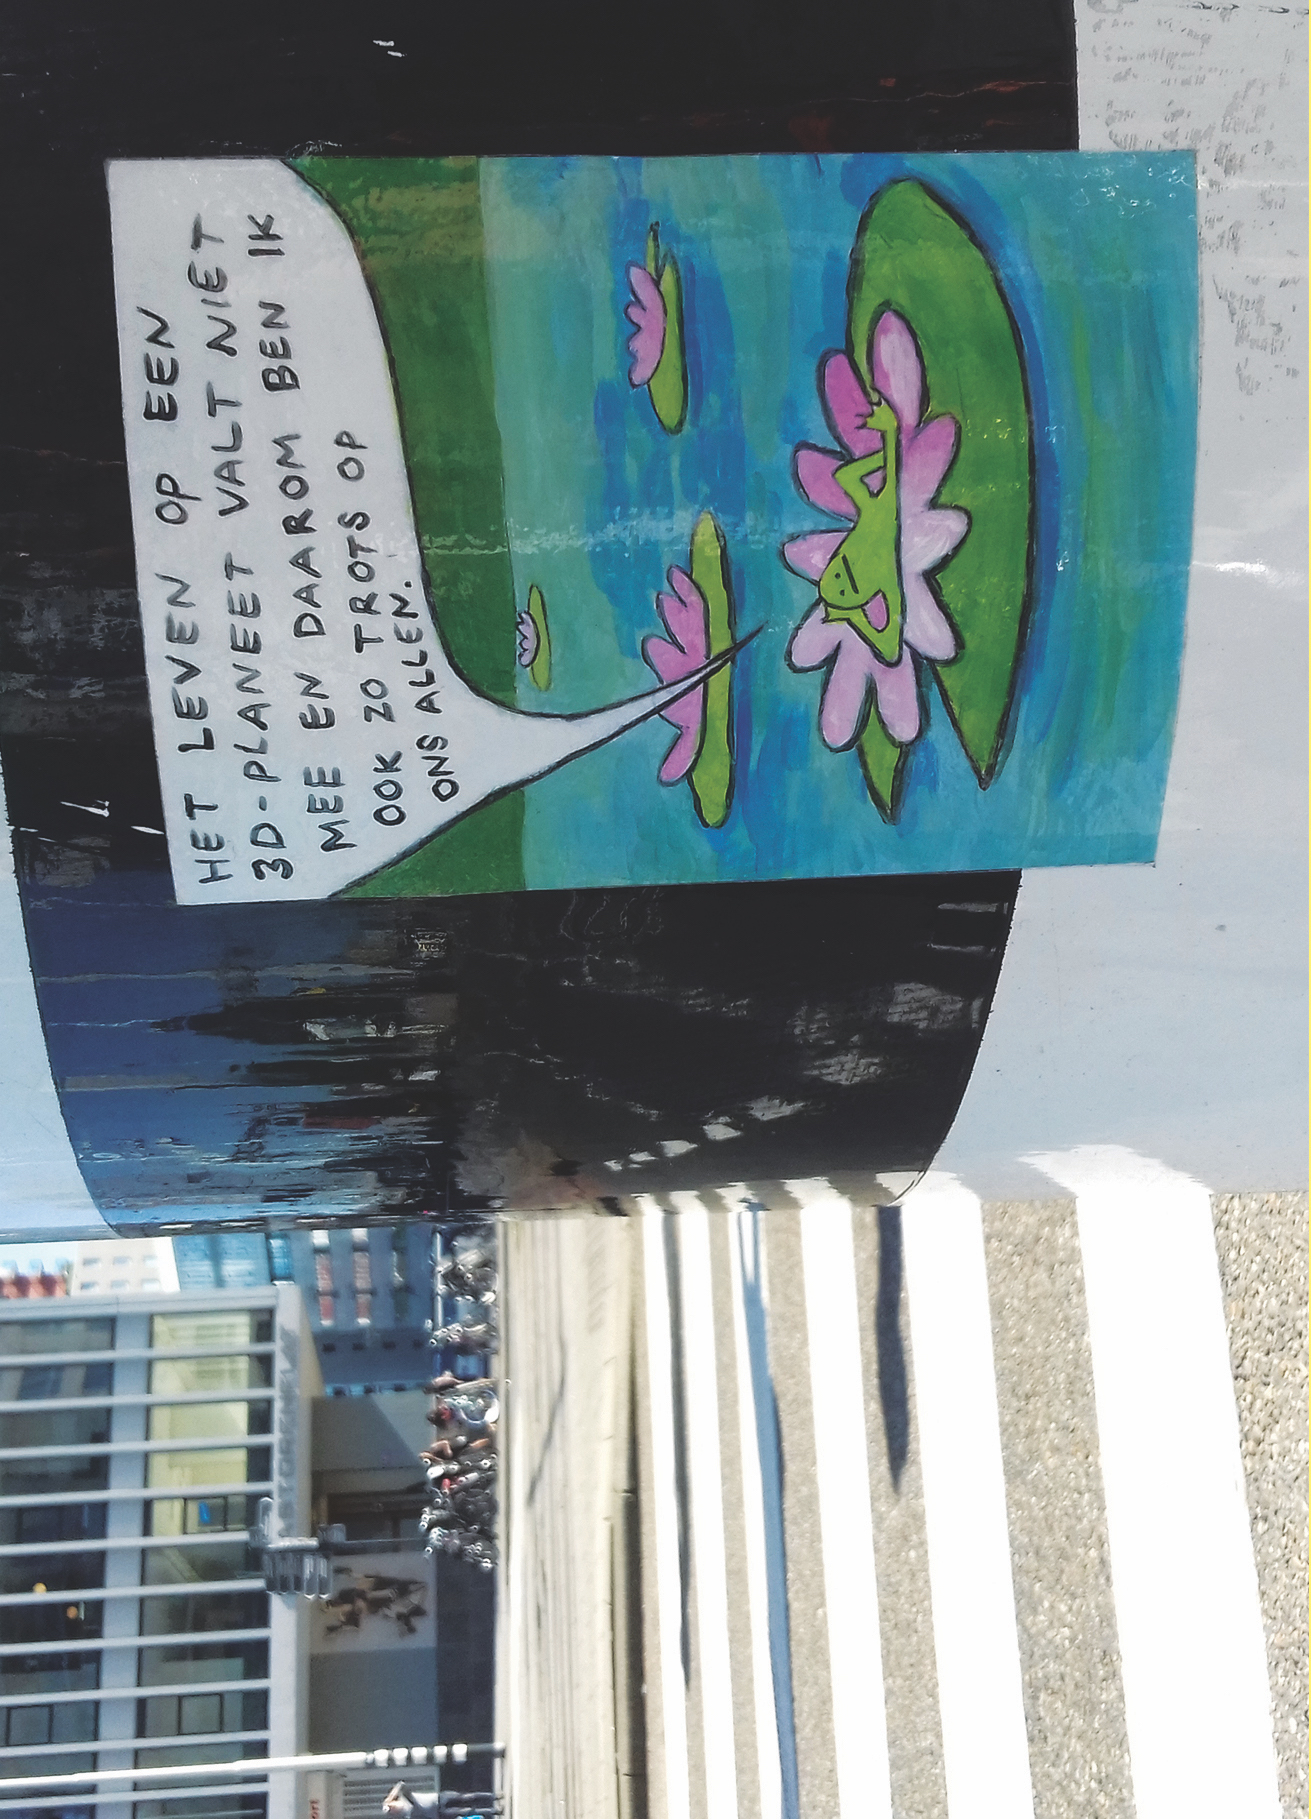 HET LEVEN OP EEN
3D-PLANEET VALT NIET
MEE EN DAAROM BEN IK
OOK ZO TROTS OP
ONS ALLEN.